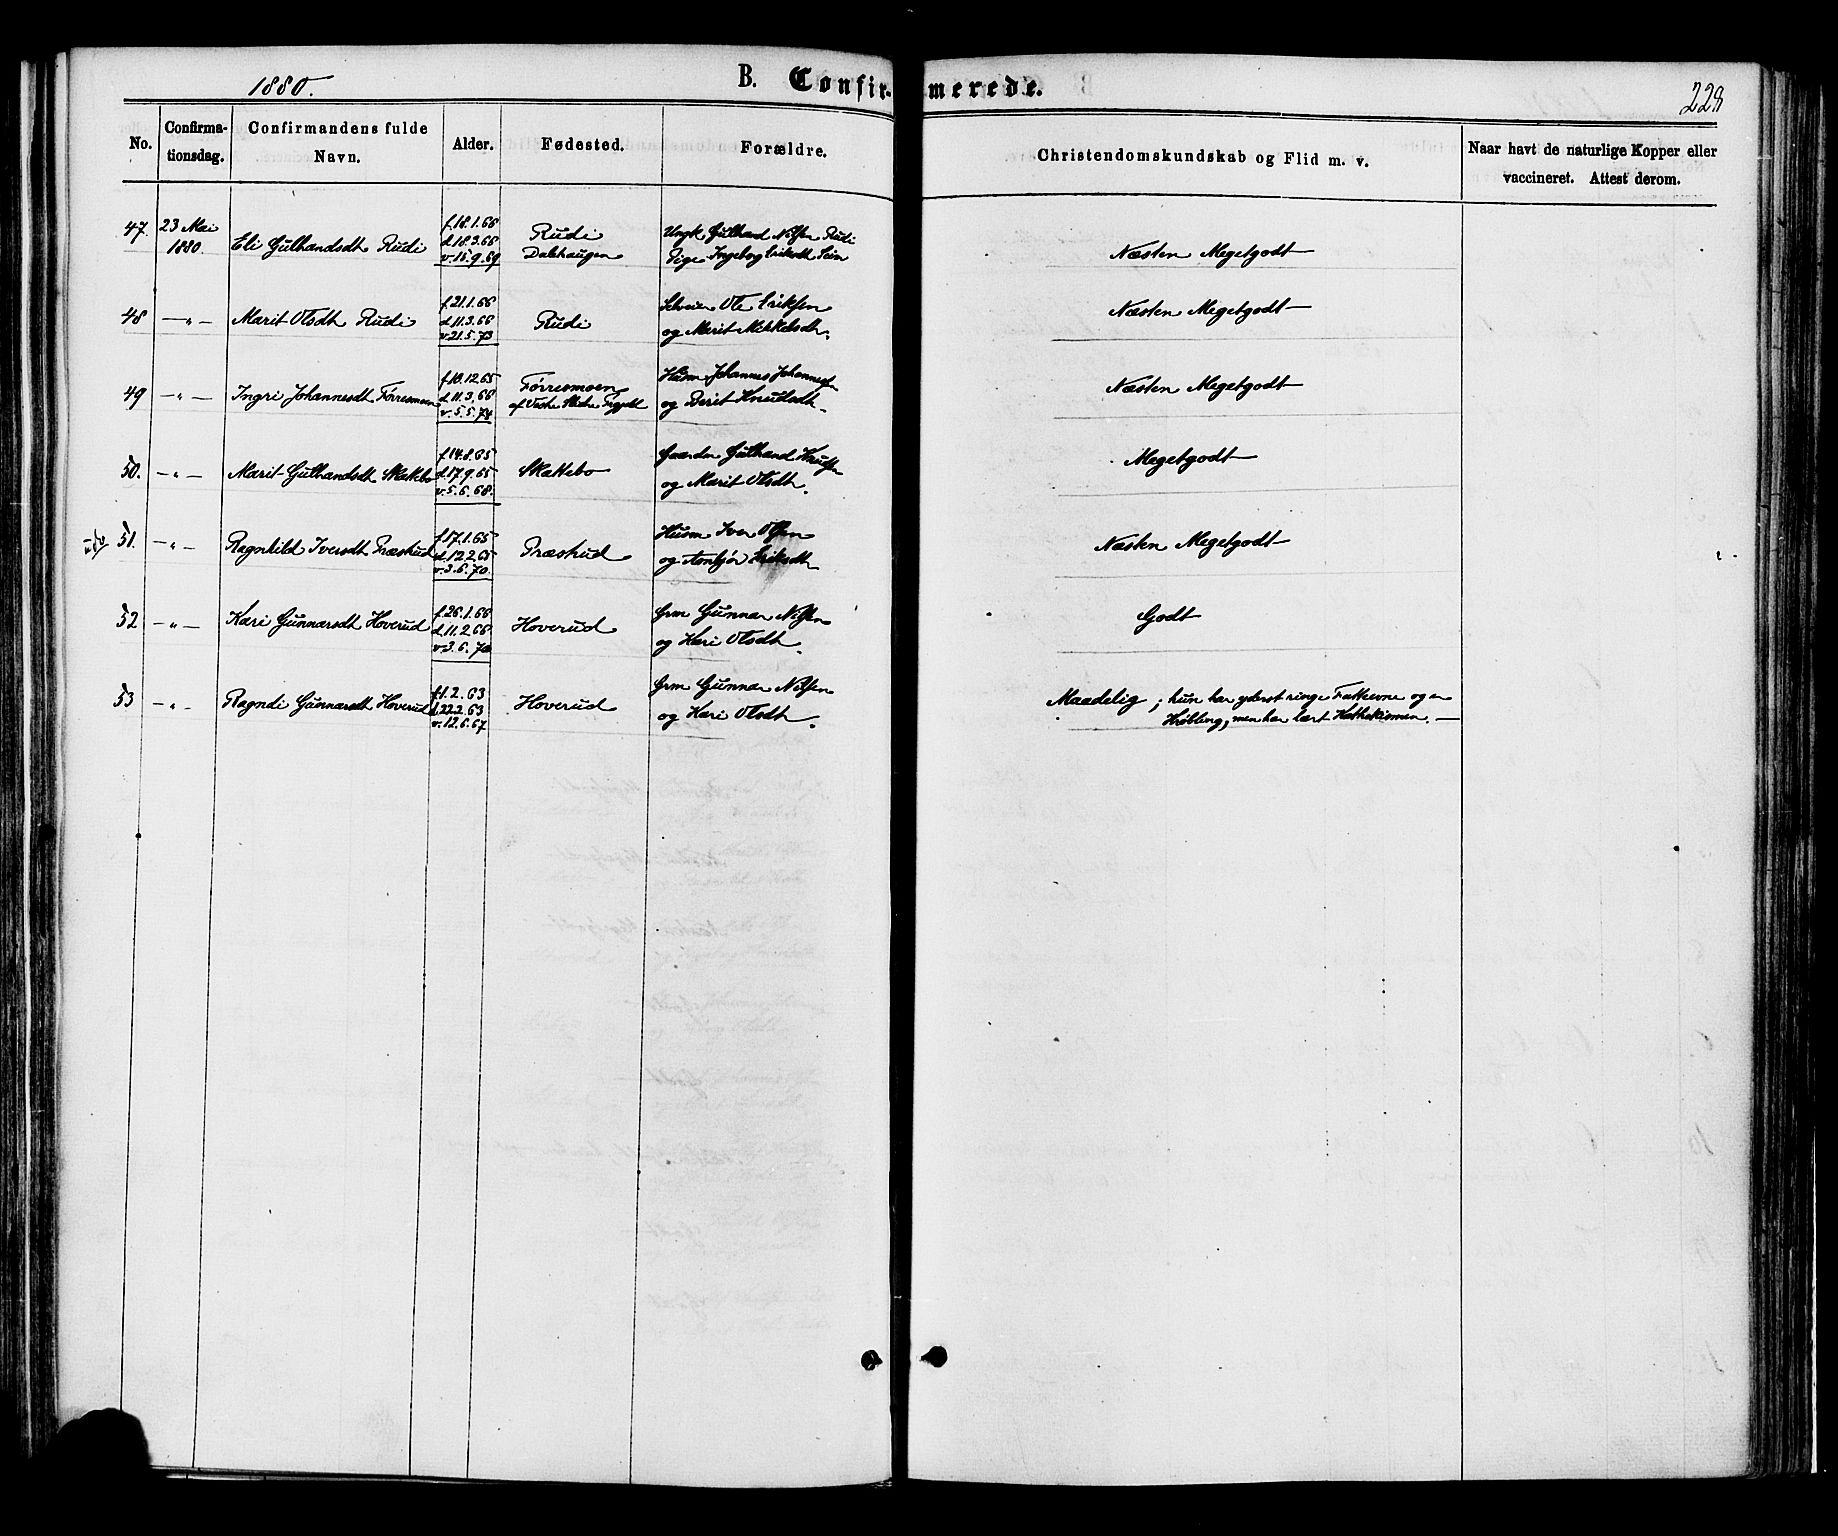 1880.
B. Confirmerede.
228
No.
Confirmationsdag.
Confirmandens fulde Navn.
Alder.
Fødested.
Forældre.
Christendomskundskab og Flid m. v.
Naar havt de naturlige Kopper eller vaccineret. Attest derom.
47. 23 Mai 1880. Eli Gulbrandsdt Rudi f. 18.1.66 d. 18.3.66 v. 15.9.69 Rudi Dalehaugen Ungk Gulbrand Nilsen Rudi Pige Ingeborg Eriksdt Sein Næsten Megetgodt
48 —"— Marit Olsdt Rudi f. 21.1.66 d. 11.3.66 v. 21.5.73 Rudi Selveier Ole Eriksen og Marit Mikkelsdt. Næsten Megetgodt
49 —"— Ingri Johannesdt Førresmoen f. 10.12.65 d. 11.3.66 v. 5.5.74 Førresmoen af Vestre Slidre Prgjeld Husm Johannes Johannesen og Berit Knudsdt. Næsten Megetgodt
50. —"— Marit Gulbrandsdt Skattebo f. 14.8.65 d. 17.9.65 v. 5.6.68. Skattebo Gaardm Gulbrand Knudsen og Marit Olsdt. Megetgodt
udv 51. —"— Ragnhild Iversdt Præstrud f. 17.1.65 d. 12.2.65 v. 3.6.70. Præstrud Husm Iver Olsen og Anbjør Eriksdt Næsten Megetgodt
52 —"— Kari Gunnarsdt Hoverud f. 26.1.66 d. 11.2.66 v. 3.6.70 Hoverud Grm Gunnar Nilsen og Kari Olsdt. Godt
53 —"— Ragndi Gunnarsdt Hoverud f. 1.2.63 d. 22.2.63 v. 12.6.67 Hoverud Grm Gunnar Nilsen og Kari Olsdt. Maadelig; hun har yderst ringe Fatteevne og er
Krøbling, men har lært Kathekismen. —